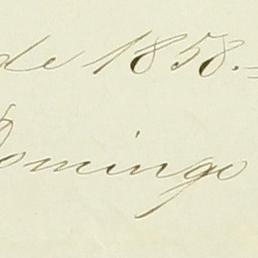 de 1858.=
Domingo